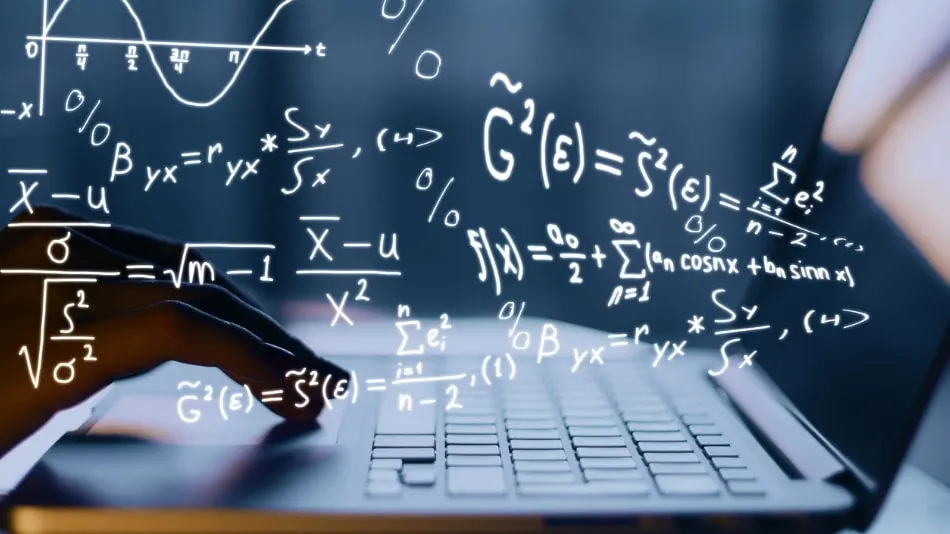 0 π/4 π/2 3π/4 π t
-x
%
%
β yx = r yx * Sy/Sx, (4)
G̃²(ε) = S̃²(ε) = ∑ⁿᵢ₌₁ eᵢ² / n-2
%
%
(X̄-u / σ) / √(S²/σ²) = √m-1
X̄-u / X²
f(x) = a₀/2 + ∑^∞ₙ₌₁ (aₙ cosnx + bₙ sinnx)
%
β yx = r yx * Sy/Sx, (4)
G̃²(ε) = S̃²(ε) = ∑ⁿᵢ₌₁ eᵢ² / n-2, (1)